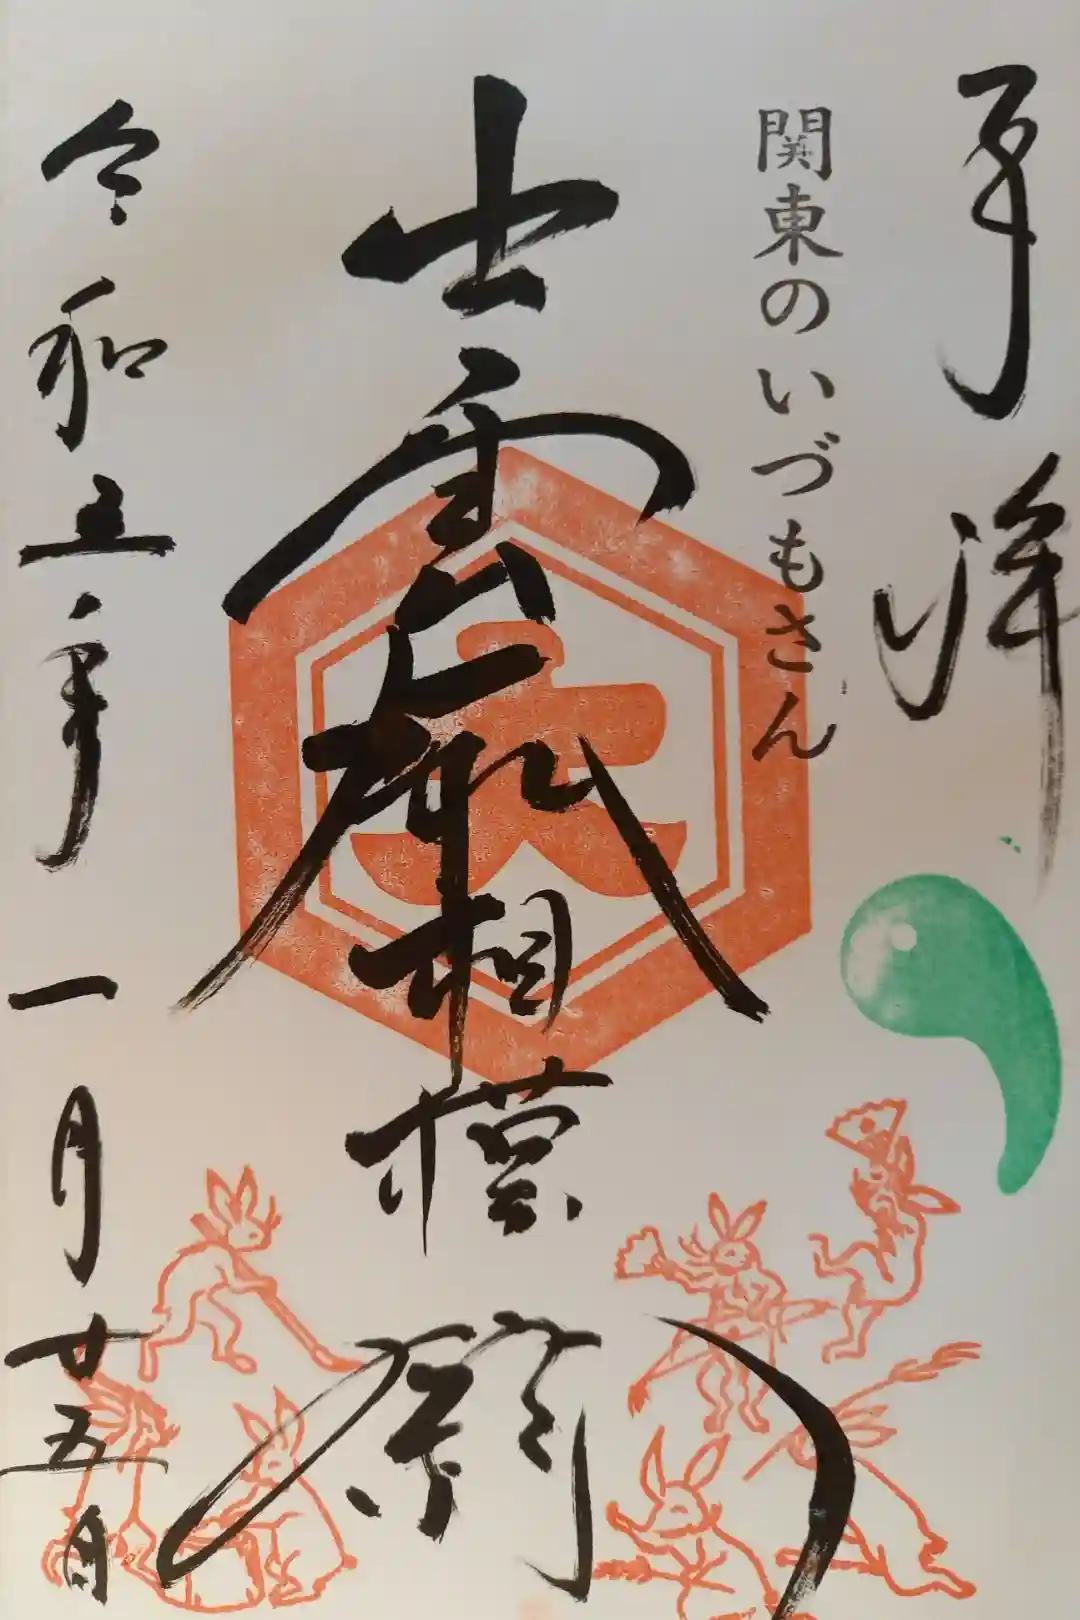 奉拝
関東のいづもさん
出雲大社相模分祠
大
令和五年一月廿五日